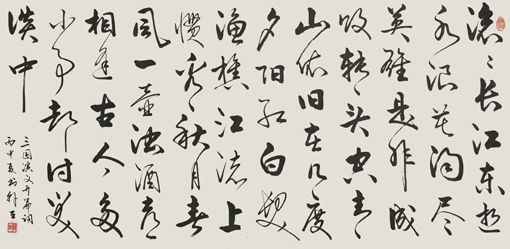 滚滚长江东逝
水浪花淘尽
英雄是非成
败转头空青
山依旧在几度
夕阳红白发
渔樵江渚上
惯看秋月春
风一壶浊酒喜
相逢古今多
少事都付笑
谈中
三国演义开篇词
丙申夏